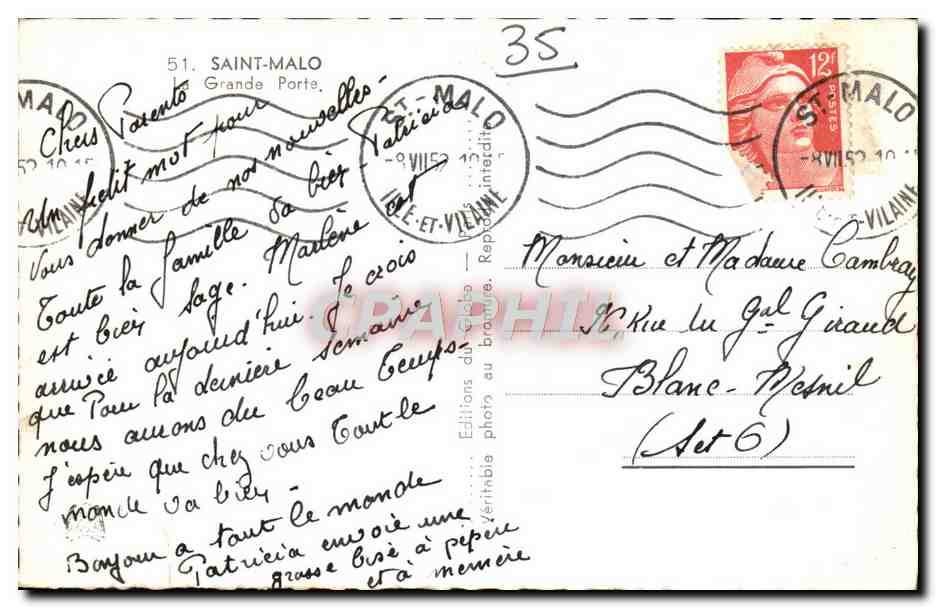 35
51. SAINT-MALO
La Grande Porte
12F
POSTES
MALO
52 10-15
VILAINE
ST-MALO
-8 VII 52 10-15
ILLE-ET-VILAINE
ST-MALO
-8 VII 52 10-15
VILAINE
Chers Parents
Un petit mot pour
Vous donner de nos nouvelles
Toute la famille va bien Patricia
est bien sage. Marlène est
arrivée aujourd'hui. Je crois
que Pour la dernière semaine
nous aurons du beau temps-
J'espère que chez vous Tout le
monde va bien -
Bonjour a tout le monde
Patricia envoie une
grosse bise à pépère
et à memère
Editions du Globe
Véritable photo au bromure. Reprod. interdite
Monsieur et Madame Cambray
Rue du Gal Giraud
Blanc-Mesnil
(Set O)
CRAPHIL